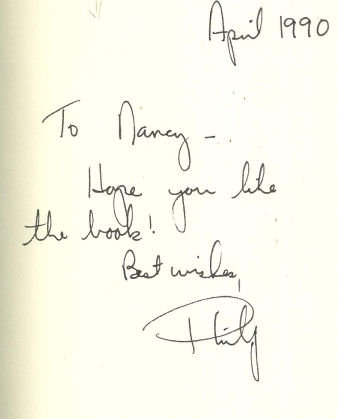 April 1990
To Nancy –
Hope you like
the book!
Best wishes,